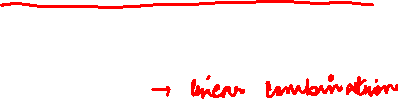 → linear combination